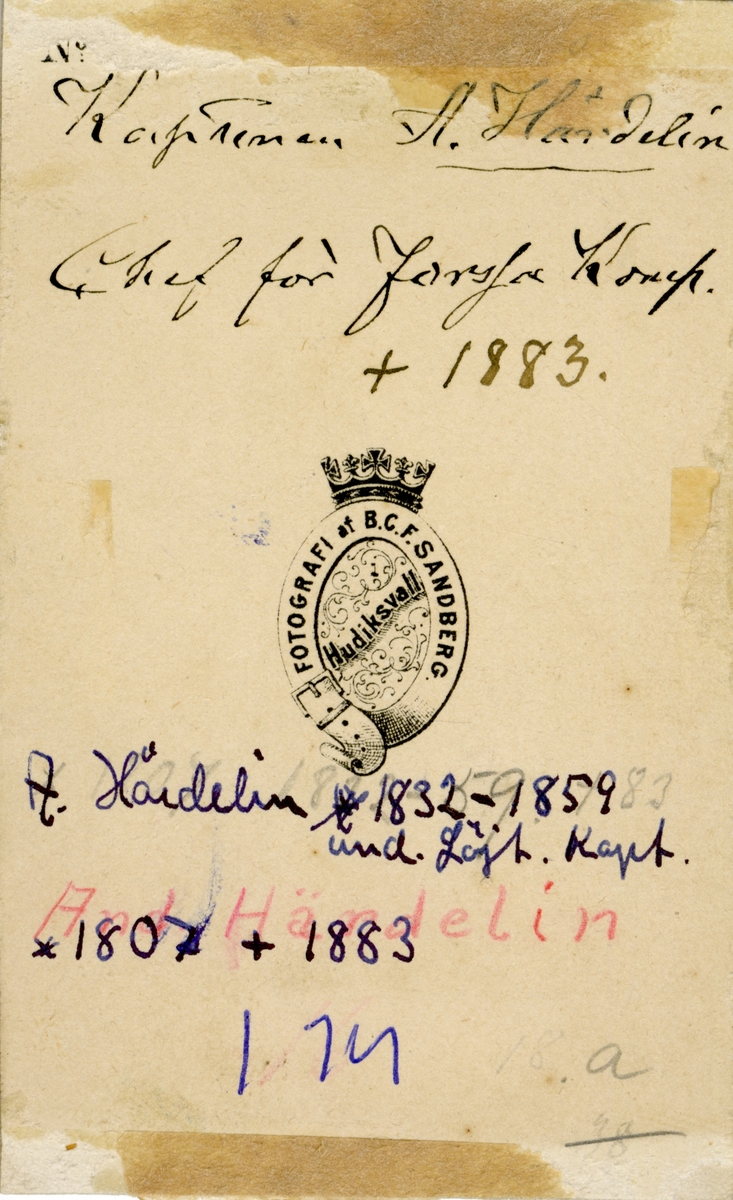 No
Kaptenen A. Härdelin
Chef för Jerfsö Komp.
+ 1883.
FOTOGRAFI af B.C.F. SANDBERG.
i
Hudiksvall
A. Härdelin * 1832-1859
und. Löjt. Kapt.
And Händelin
* 1807 + 1883
1 74
18. a
38